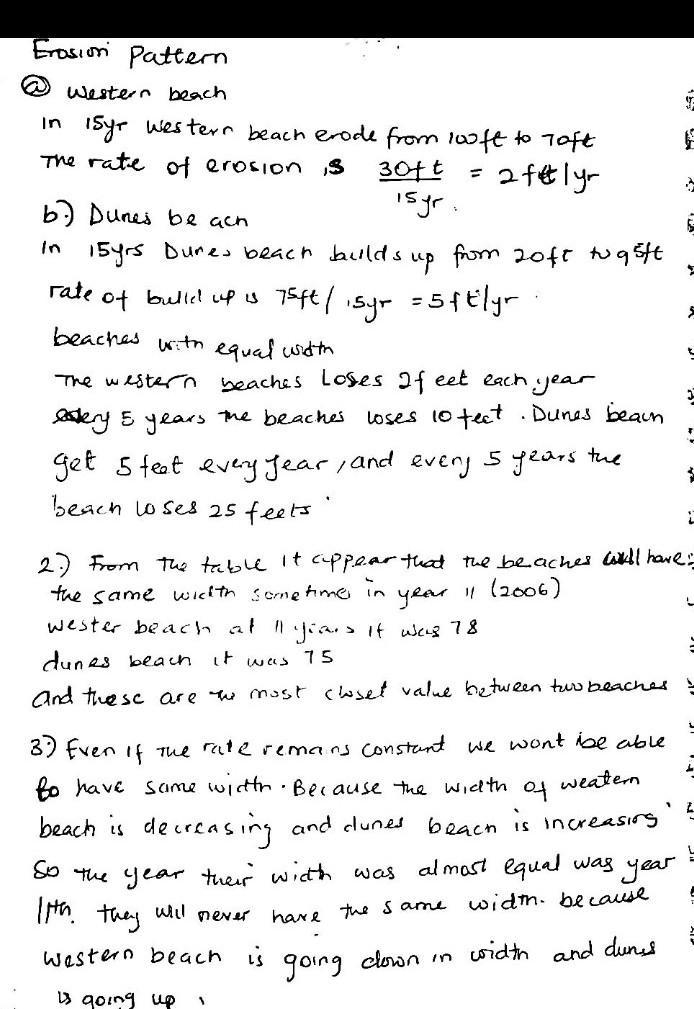 Erosion Pattern
(a) Western beach
In 15yr Western beach erode from 100ft to 70ft
The rate of erosion is 30ft / 15yr. = 2ft/yr
b.) Dunes beach
In 15yrs Dunes beach builds up from 20ft to 95ft
rate of build up is 75ft / 15yr = 5ft/yr.
beaches with equal width
The western beaches Loses 2feet each year
every 5 years the beaches loses 10 feet. Dunes beach
get 5 feet every year, and every 5 years the
beach loses 25 feets.
2.) From the table it appear that the beaches will have
the same width sometime in year 11 (2006)
wester beach at 11 years it was 78
dunes beach it was 75
and these are the most closet value between two beaches
3.) Even if the rate remains constant we wont be able
to have same width. Because the width of weatern
beach is decreasing and dunes beach is increasing.
So the year their width was almost equal was year
11th. they will never have the same width. because
western beach is going down in width and dunes
is going up.